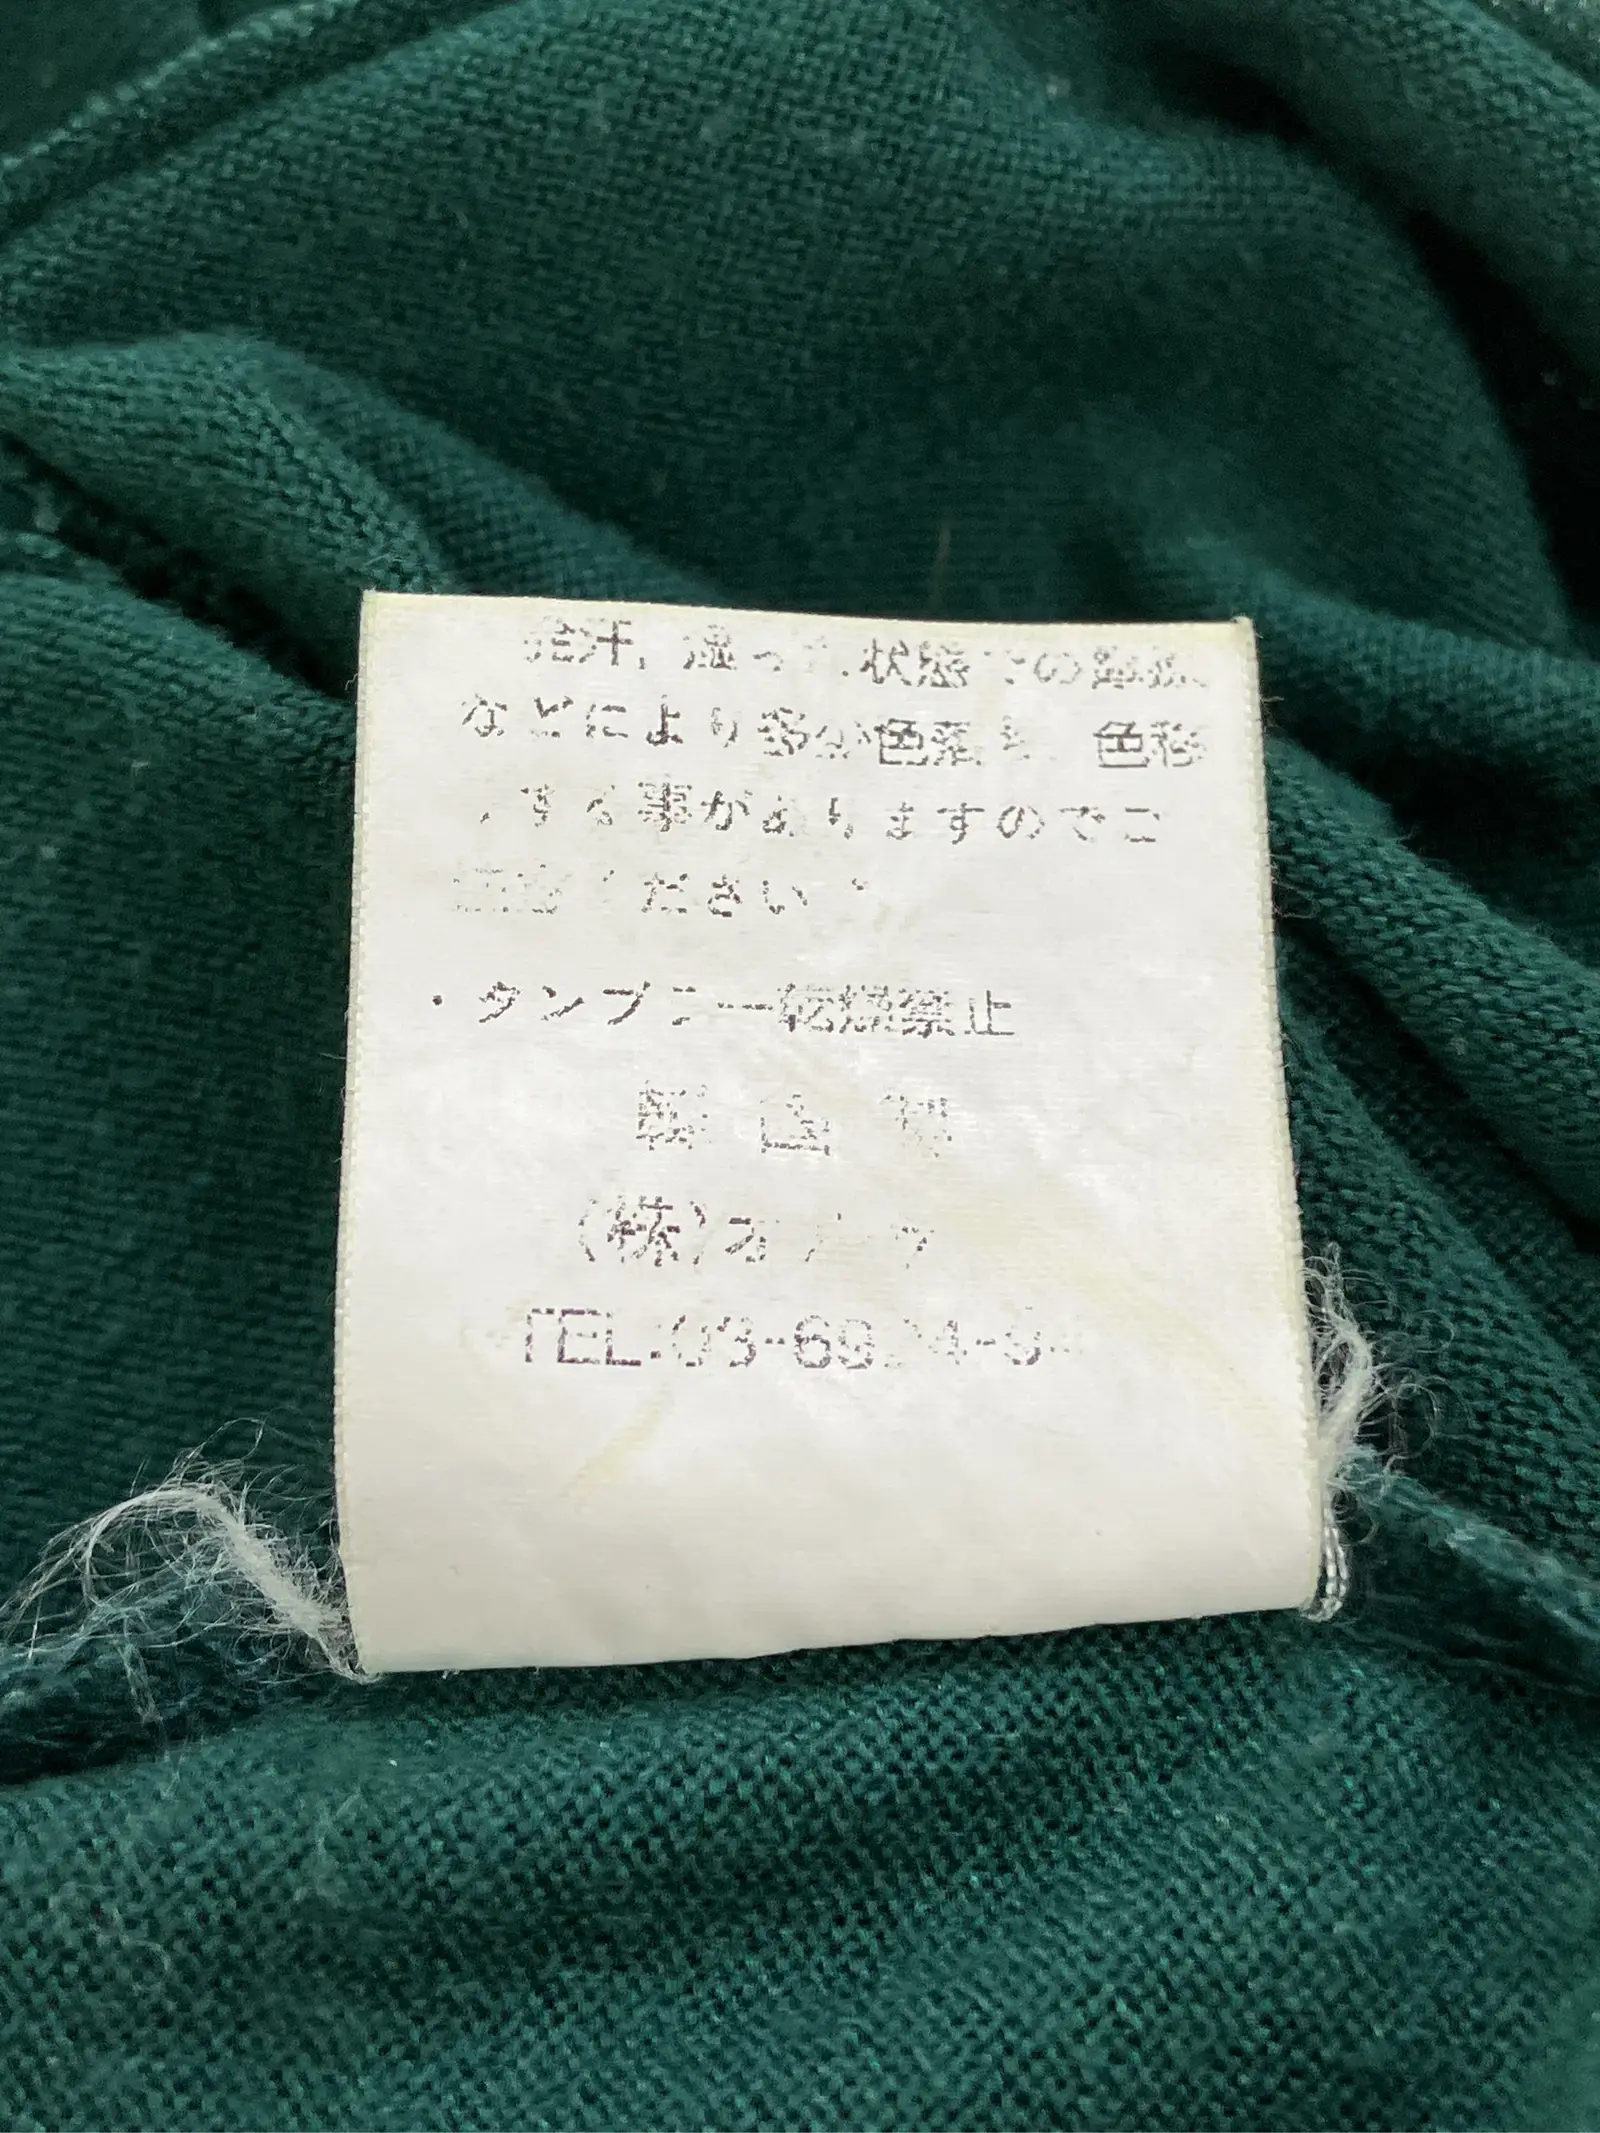 発汗、湿った状態での摩擦
などにより多少色落ち、色移
りする事がありますのでご
注意ください。
・タンブラー乾燥禁止
(株)
TEL:03-69